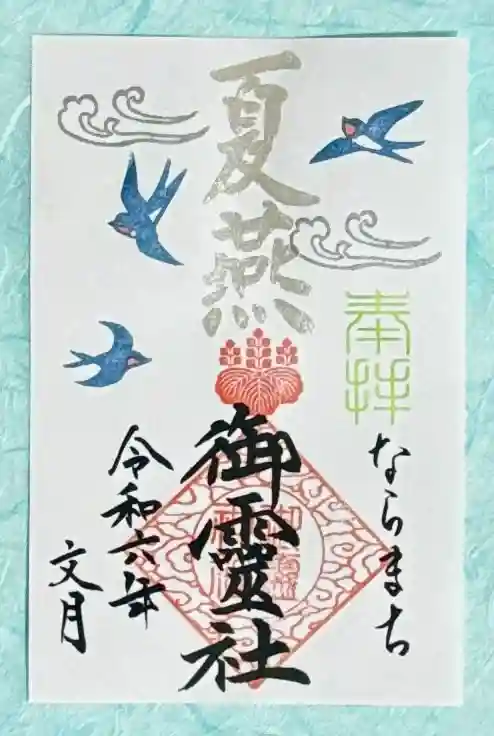 夏燕
奉拝
ならまち
御靈社
令和六年
文月